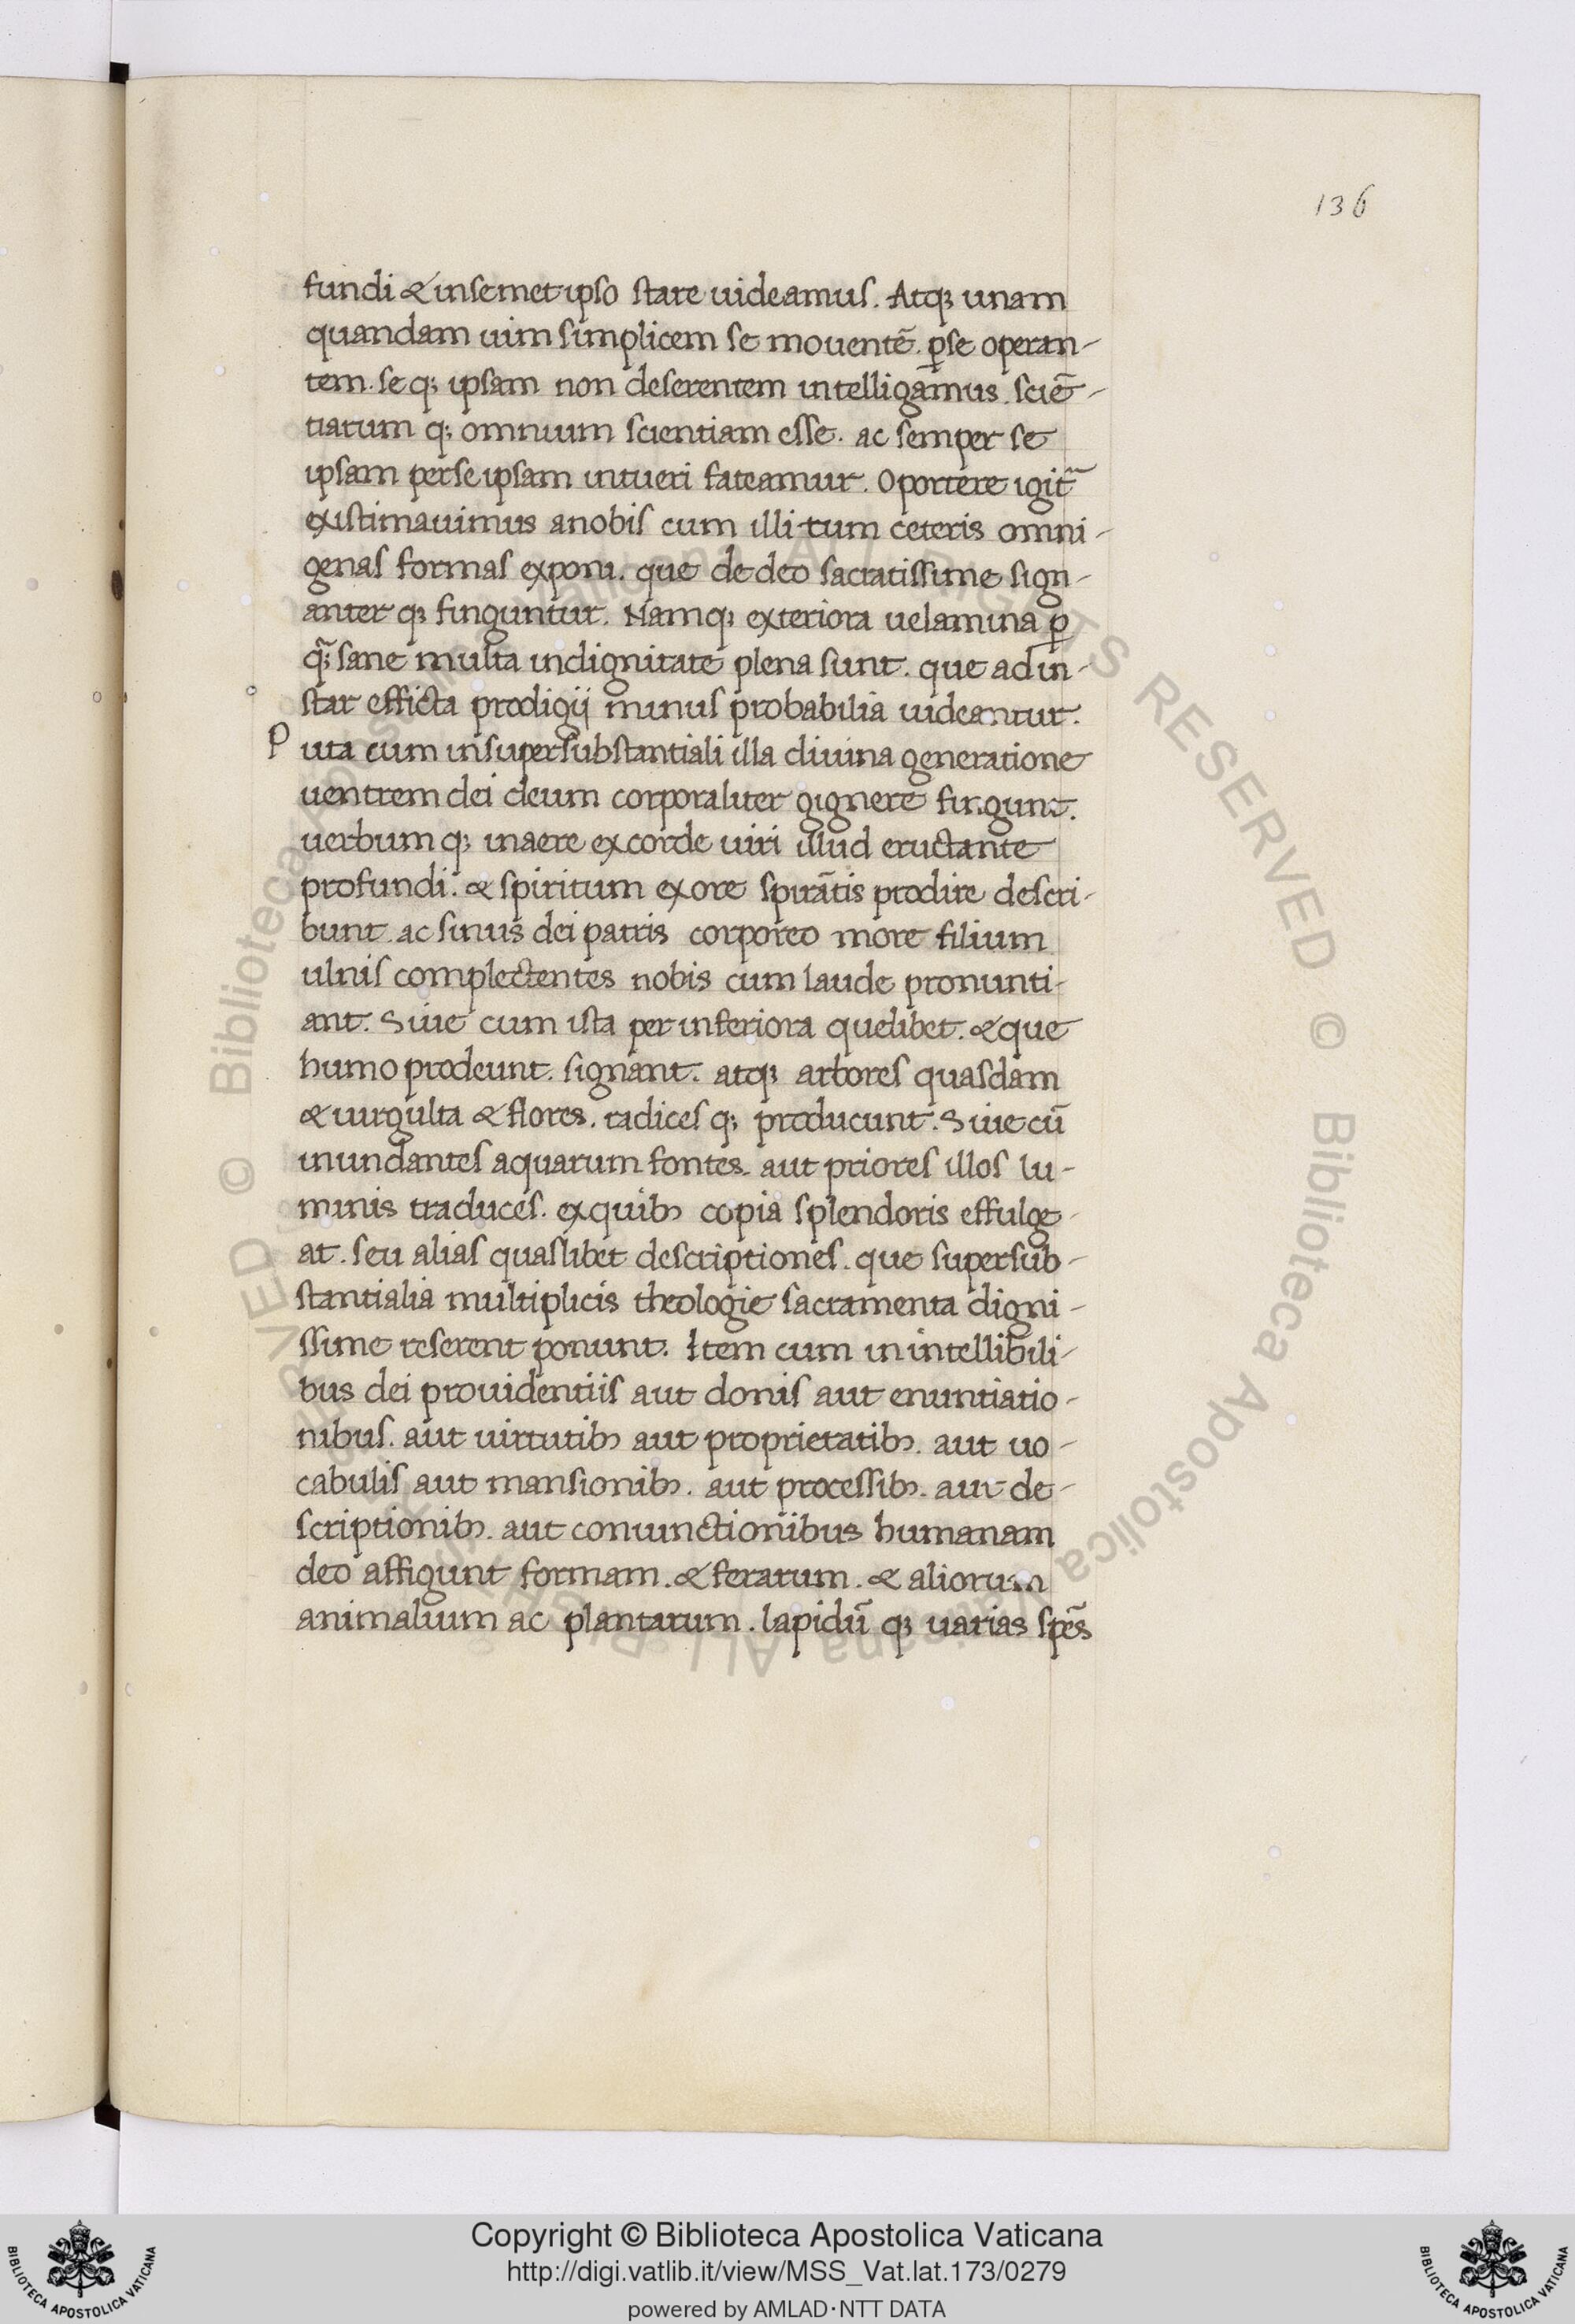 136
fundi & insemet ipso stare uideamus. Atq; unam
quandam uim simplicem se mouentē. ꝑse operan-
tem. se q; ipsam non deserentem intelligamus. sciē-
tiarum q; omnium scientiam esse. ac semper se
ipsam perse ipsam intueri fateamur. Oportere igit̃
existimauimus anobis cum illi tum ceteris omni-
genas formas exponi. que dedeo sacratissime sign-
anter q; finguntur. Namq; exteriora uelamina ꝑ
q̃; sane multa indignitate plena sunt. que adin-
star efficta prodigij minus probabilia uideantur.
P uta cum insupersubstantiali illa diuina generatione
uentrem dei deum corporaliter gignere fingunt.
uerbum q; inaere excorde uiri illud eructante
profundi. & spiritum exore spirātis prodire descri-
bunt. ac sinus dei patris corporeo more filium
ulnis complectentes nobis cum laude pronunti-
ant. Siue cum ista per inferiora quelibet. & que
humo prodeunt. signant. atq; arbores quasdam
& uirgulta & flores. radices q; producunt. Siue cū
inundantes aquarum fontes. aut priores illos lu-
minis traduces. exquibꝫ copia splendoris effulge-
at. seu alias quaslibet descriptiones. que supersub-
stantialia multiplicis theologie sacramenta digni-
ssime reserent ponunt. Item cum in intellibili-
bus dei prouidentiis aut donis aut enuntiatio-
nibus. aut uirtutibꝫ aut proprietatibꝫ. aut uo-
cabulis aut mansionibꝫ. aut processibꝫ. aut de-
scriptionibꝫ. aut coniunctionibus humanam
deo affigunt formam. & ferarum. & aliorum
animalium ac plantarum. lapidū q; uarias spēs
© Biblioteca Apostolica Vaticana ALL RIGHTS RESERVED © Biblioteca Apostolica Vaticana ALL RIGHTS RESERVED
Copyright © Biblioteca Apostolica Vaticana
http://digi.vatlib.it/view/MSS_Vat.lat.173/0279
powered by AMLAD·NTT DATA
BIBLIOTECA APOSTOLICA VATICANA
BIBLIOTECA APOSTOLICA VATICANA